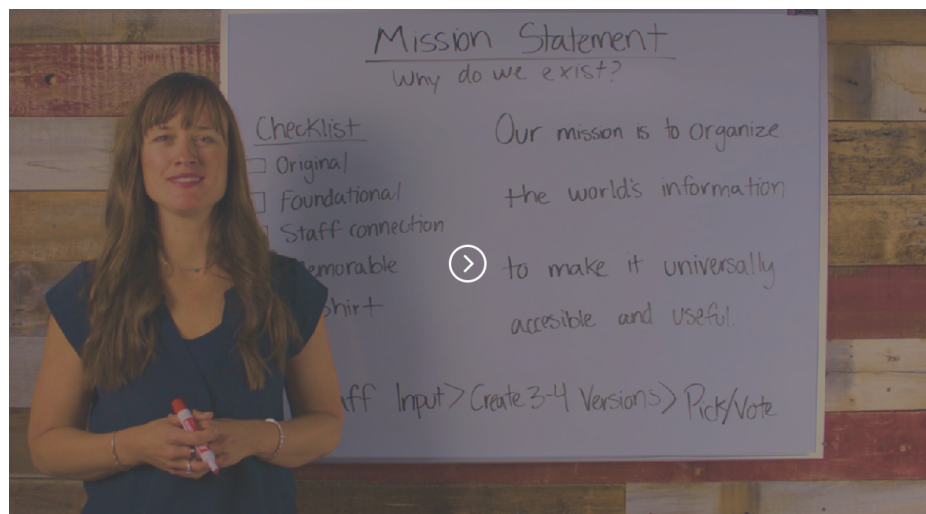 Mission Statement
Why do we exist?
Checklist
Original
Foundational
Staff connection
emorable
shirt
Our mission is to organize
the world's information
to make it universally
accesible and useful.
aff Input > Create 3-4 Versions > Pick/Vote